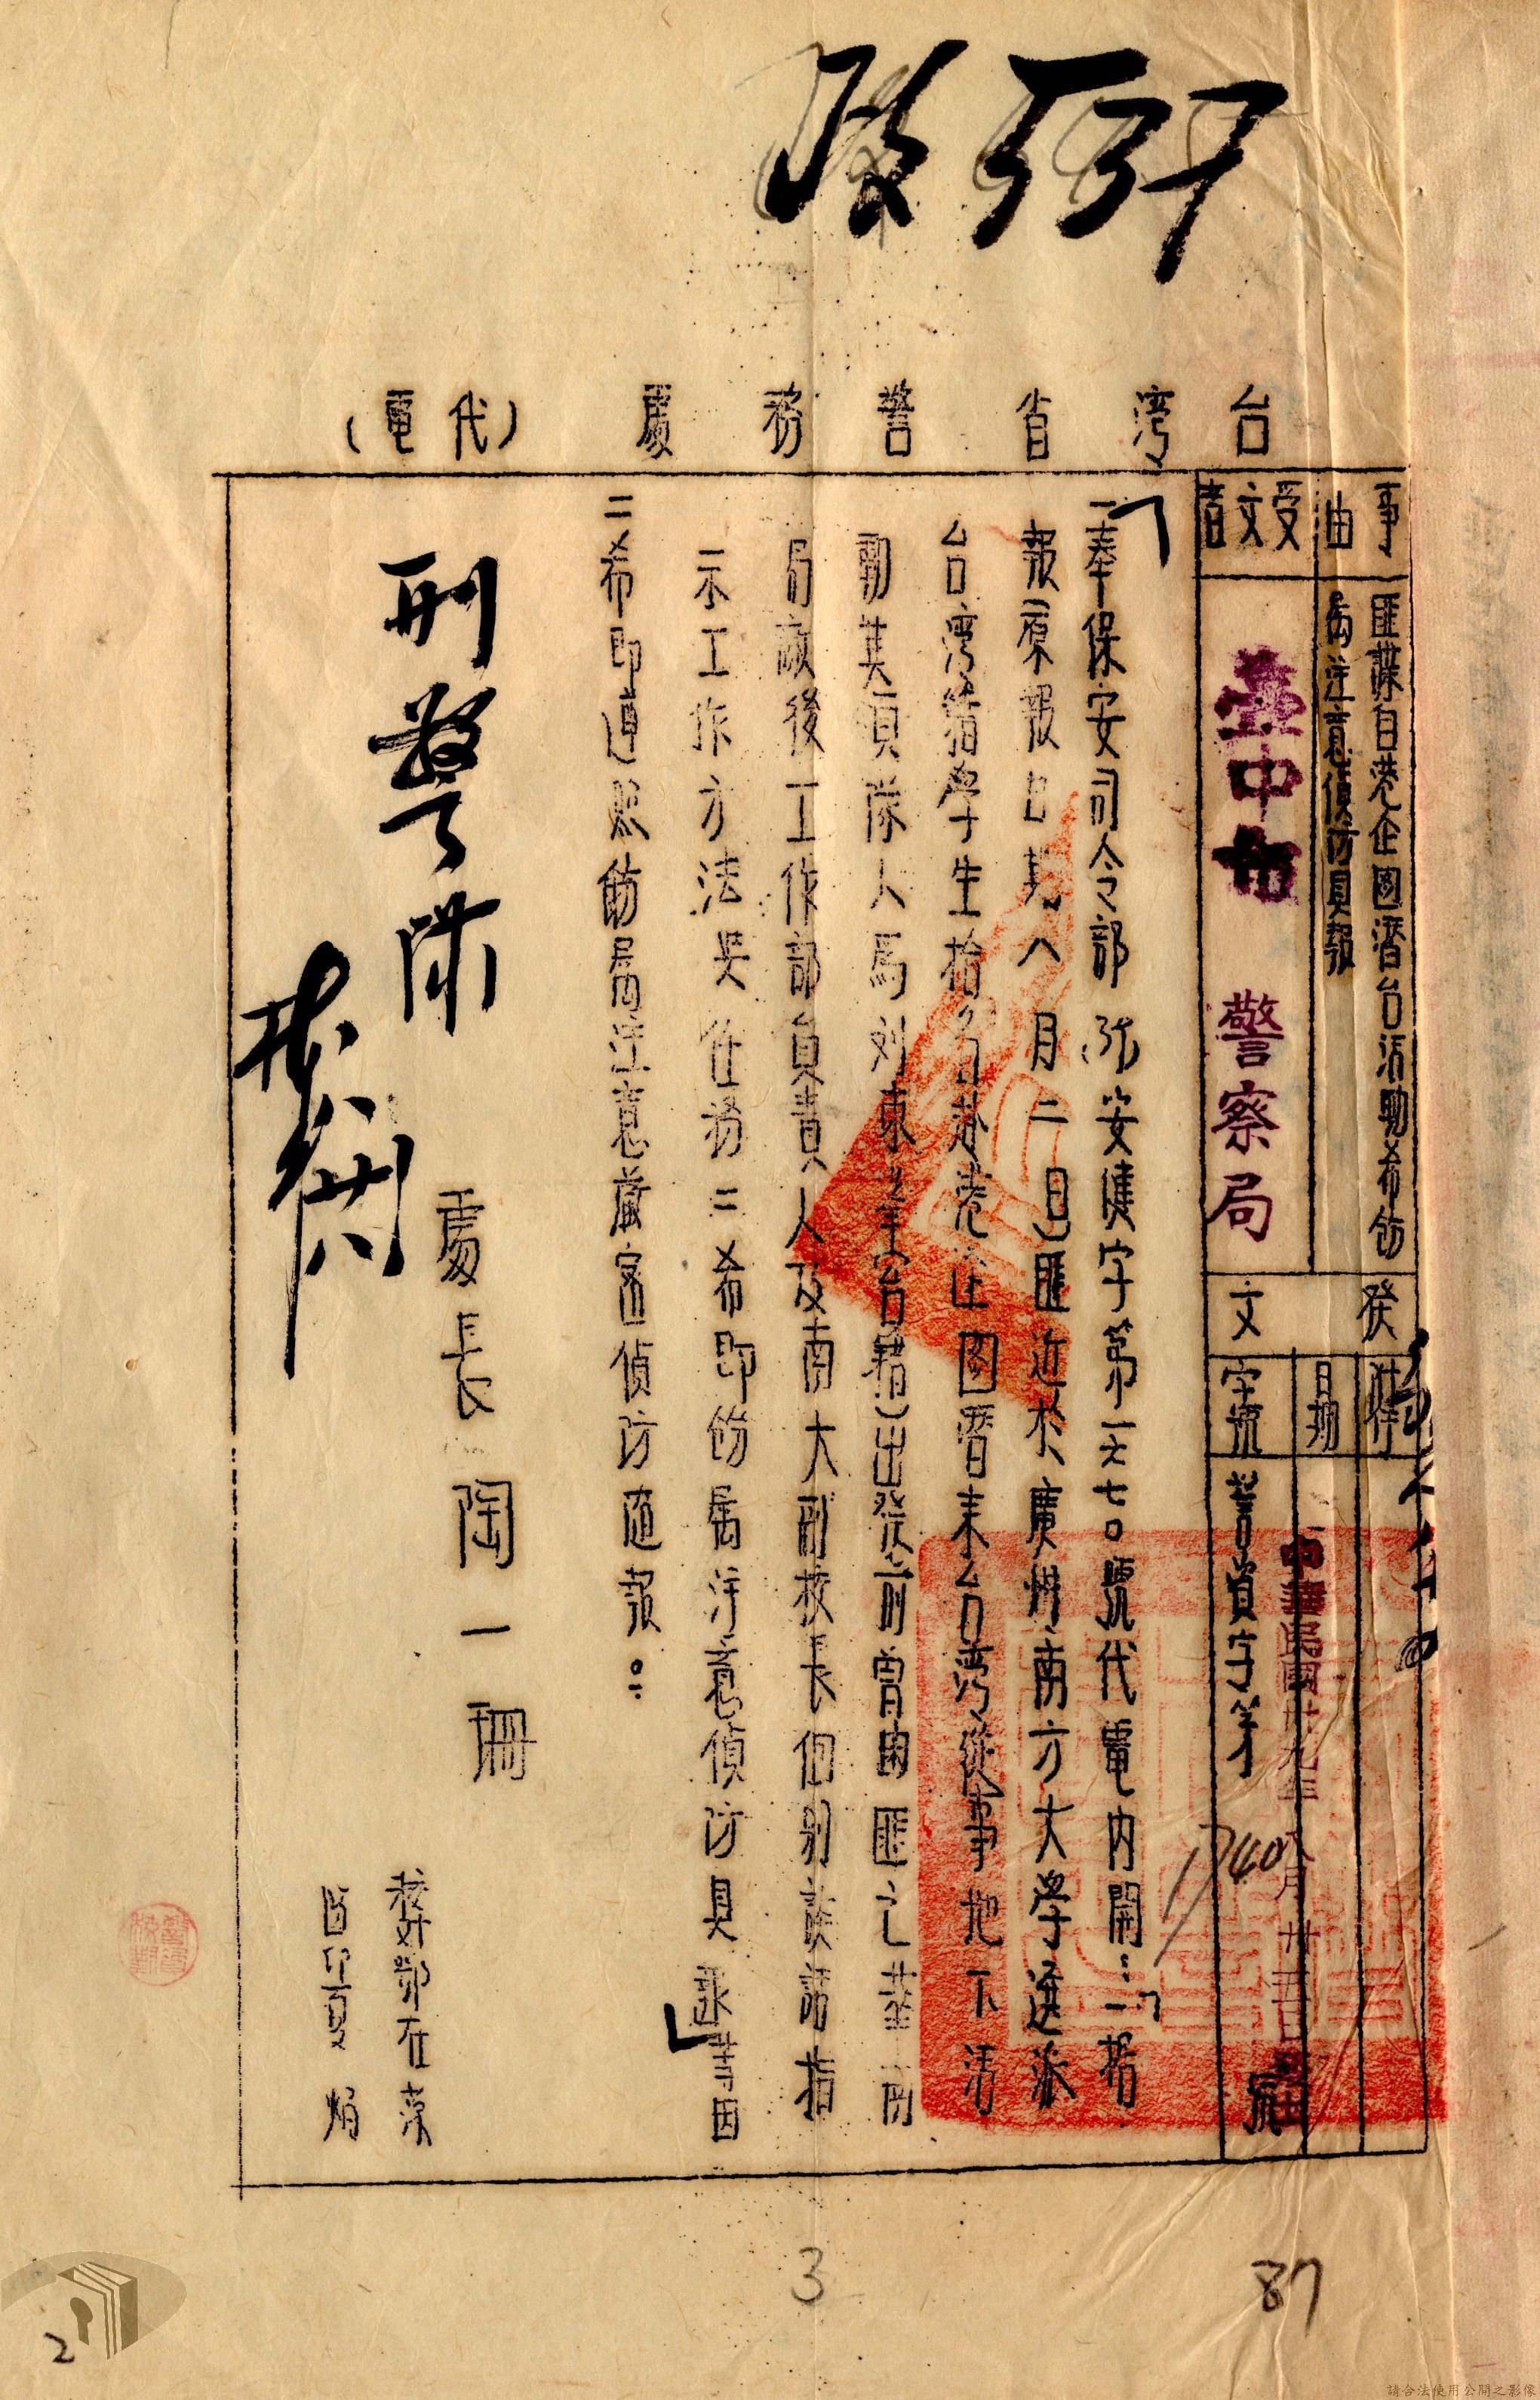 台灣省警務處（代電）
事由
匪諜自港企圖潛台活動希飭
屬注意偵防具報
受文者
臺中市警察局
發文
附件
日期
中華民國卅九年八月廿五日
字號
警貞字第1740號
一奉保安司令部安健字第一六七〇號代電內開：「一據
報（原報日期八月二日）匪近於廣州南方大學選派
台灣籍學生拾名赴港企圖潛來台灣從事地下活
動其領隊人馬刘東業（台籍）出發前曾由匪之華南
局敵後工作部負責人及南大副校長個別談話指
示工作方法與任務二希即飭屬注意偵防具報」等因
二希即遵照飭屬注意嚴密偵防隨報：
刑警隊
處長陶一珊
3
87
2
請合法使用公開之影像